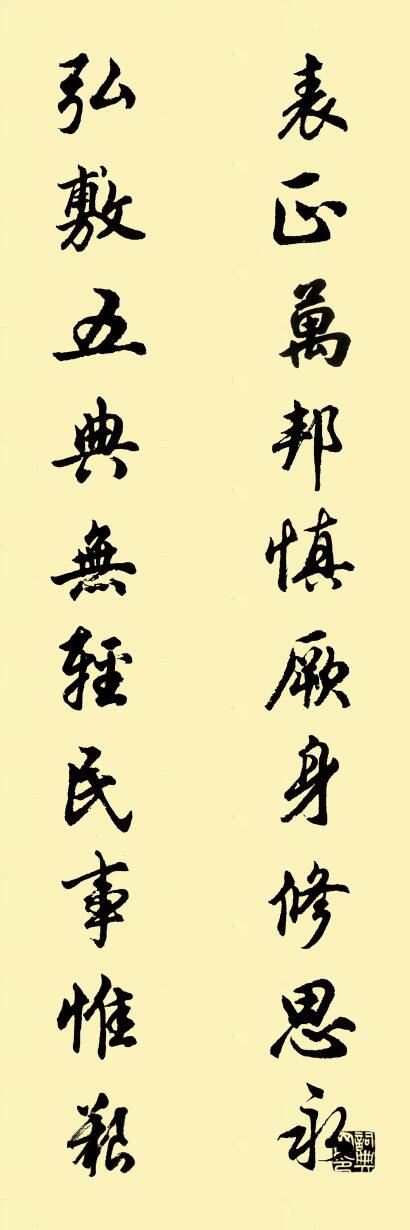 表正萬邦慎厥身修思永
弘敷五典無輕民事惟艱